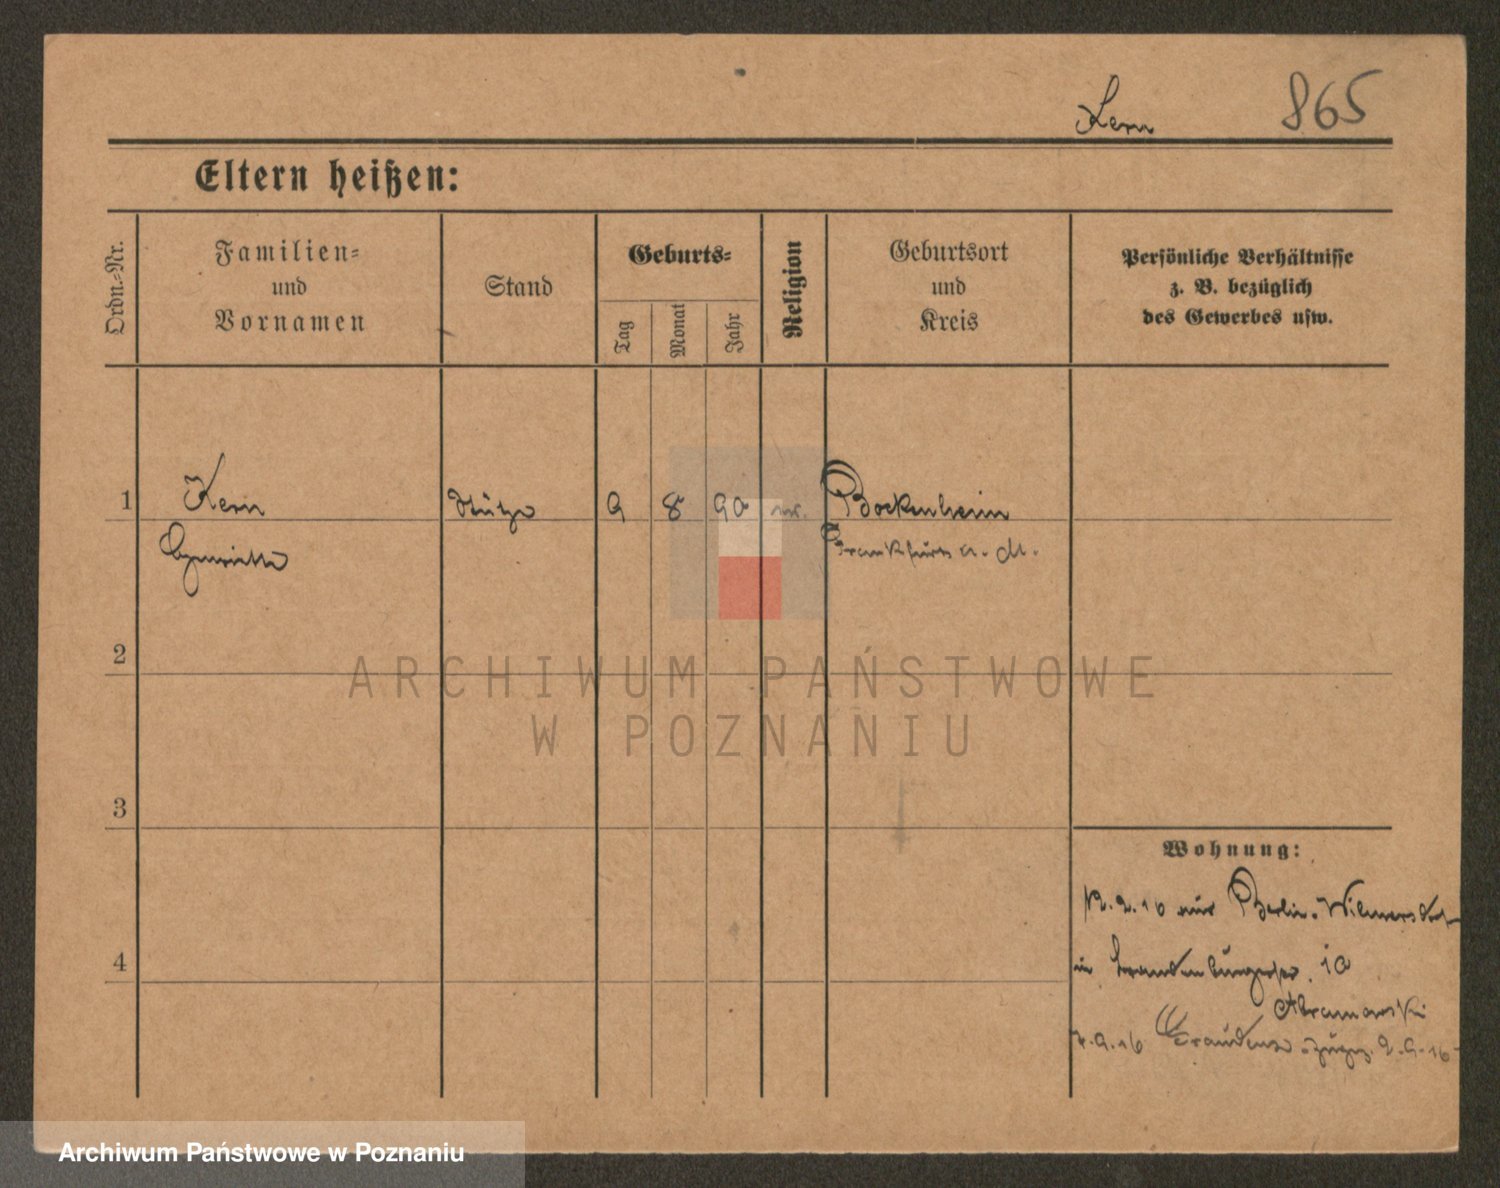 Kern 865
Eltern heißen:
Ordn.-Nr.
Familien-
und
Vornamen
Stand
Geburts-
Tag
Monat
Jahr
Religion
Geburtsort
und
Kreis
Persönliche Verhältnisse
z. B. bezüglich
des Gewerbes usw.
1 Kern Stütze 9 8 90 Bockenheim
Henriette Frankfurt a. M.
2
3
4
Wohnung:
12.2.16 Berlin-Wilmersdorf
Brandenburgerstr. 10
Abramowski
7.9.16 Graudenz 2.9.16
ARCHIWUM PAŃSTWOWE
W POZNANIU
Archiwum Państwowe w Poznaniu